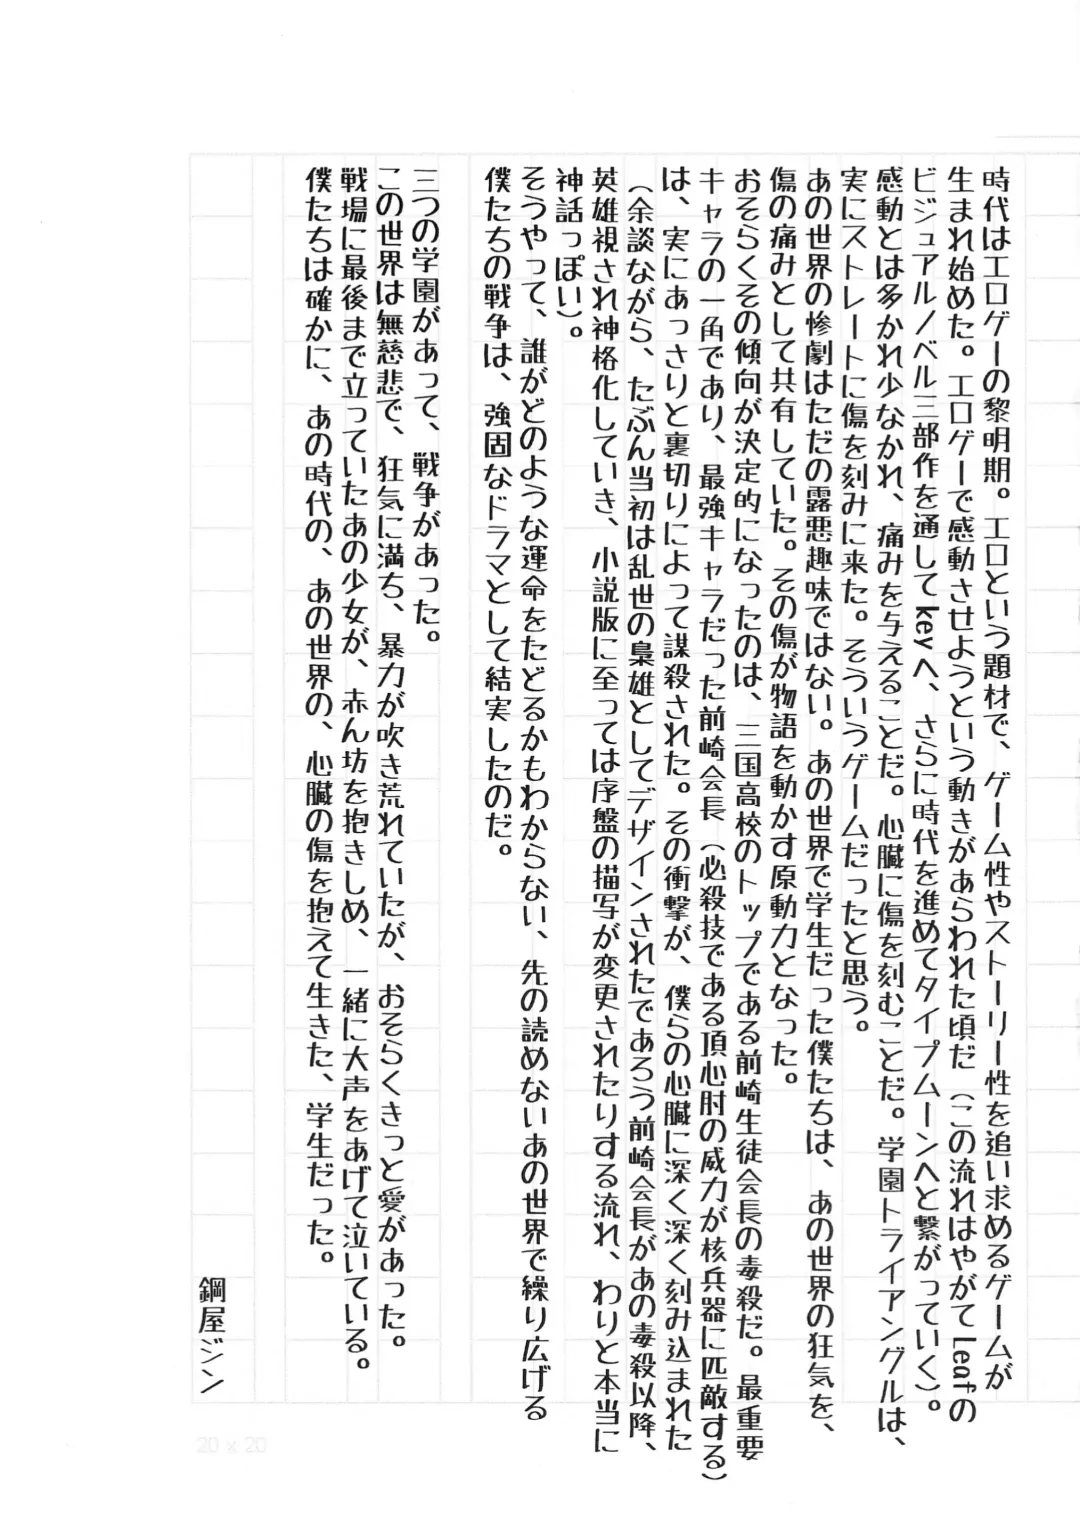 時代はエロゲーの黎明期。エロという題材で、ゲーム性やストーリー性を追い求めるゲームが
生まれ始めた。エロゲーで感動させようという動きがあらわれた頃だ（この流れはやがてLeafの
ビジュアルノベル三部作を通してkeyへ、さらに時代を進めてタイプムーンへと繋がっていく）。
感動とは多かれ少なかれ、痛みを与えることだ。心臓に傷を刻むことだ。学園トライアングルは、
実にストレートに傷を刻みに来た。そういうゲームだったと思う。
あの世界の惨劇はただの露悪趣味ではない。あの世界で学生だった僕たちは、あの世界の狂気を、
傷の痛みとして共有していた。その傷が物語を動かす原動力となった。
おそらくその傾向が決定的になったのは、三国高校のトップである前崎生徒会長の毒殺だ。最重要
キャラの一角であり、最強キャラだった前崎会長（必殺技である頂心肘の威力が核兵器に匹敵する）
は、実にあっさりと裏切りによって謀殺された。その衝撃が、僕らの心臓に深く深く刻み込まれた
（余談ながら、たぶん当初は乱世の梟雄としてデザインされたであろう前崎会長があの毒殺以降、
英雄視され神格化していき、小説版に至っては序盤の描写が変更されたりする流れ、わりと本当に
神話っぽい）。
そうやって、誰がどのような運命をたどるかもわからない、先の読めないあの世界で繰り広げる
僕たちの戦争は、強固なドラマとして結実したのだ。
三つの学園があって、戦争があった。
この世界は無慈悲で、狂気に満ち、暴力が吹き荒れていたが、おそらくきっと愛があった。
戦場に最後まで立っていたあの少女が、赤ん坊を抱きしめ、一緒に大声をあげて泣いている。
僕たちは確かに、あの時代の、あの世界の、心臓の傷を抱えて生きた、学生だった。
鋼屋ジン
20 x 20